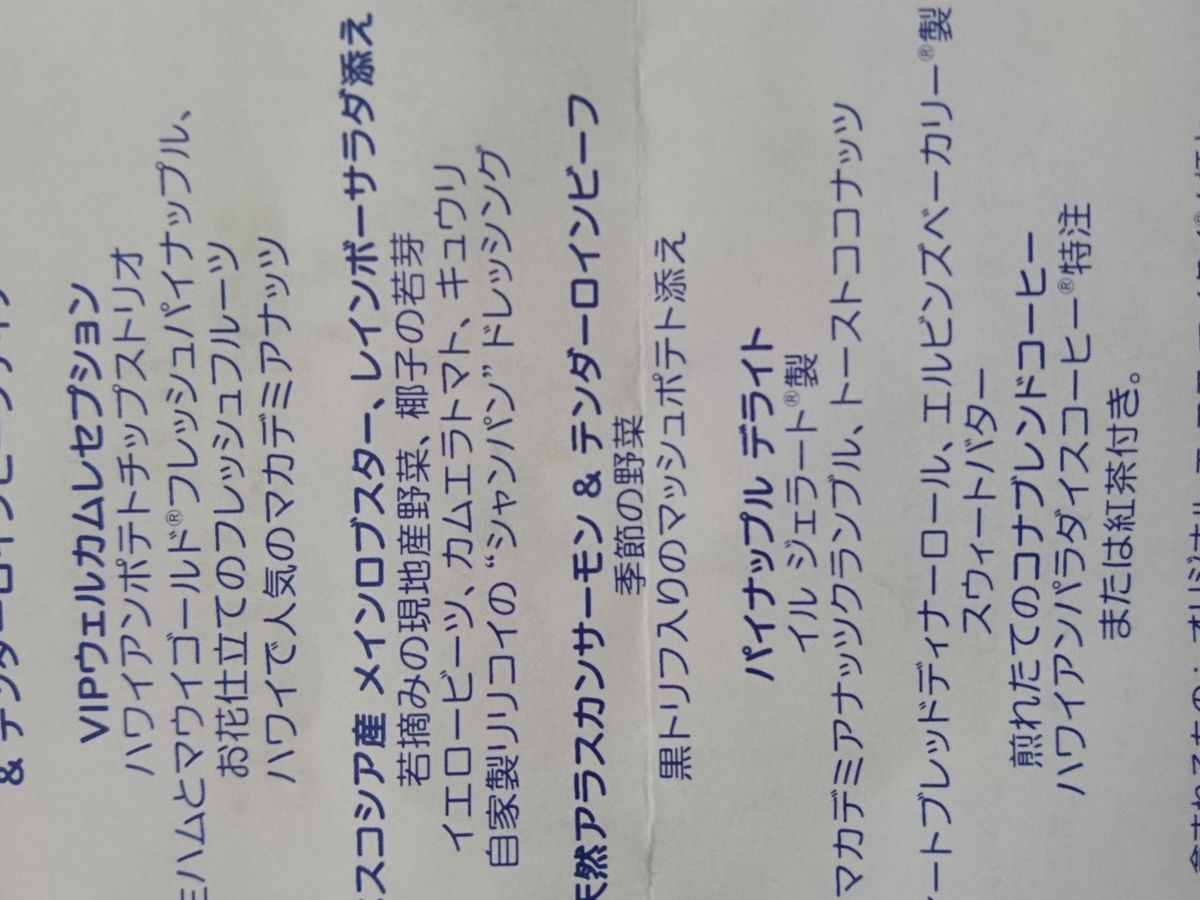 & テンダーロインビーフディナー
VIPウェルカムレセプション
ハワイアンポテトチップストリオ
ミハムとマウイゴールド®フレッシュパイナップル、
お花仕立てのフレッシュフルーツ
ハワイで人気のマカデミアナッツ
スコシア産 メインロブスター、レインボーサラダ添え
若摘みの現地産野菜、椰子の若芽
イエロービーツ、カムエラトマト、キュウリ
自家製リリコイの“シャンパン”ドレッシング
天然アラスカンサーモン & テンダーロインビーフ
季節の野菜
黒トリフ入りのマッシュポテト添え
パイナップル デライト
イル ジェラート®製
マカデミアナッツクランブル、トーストココナッツ
ートブレッドディナーロール、エルビンズベーカリー®製
スウィートバター
煎れたてのコナブレンドコーヒー
ハワイアンパラダイスコーヒー®特注
または紅茶付き。